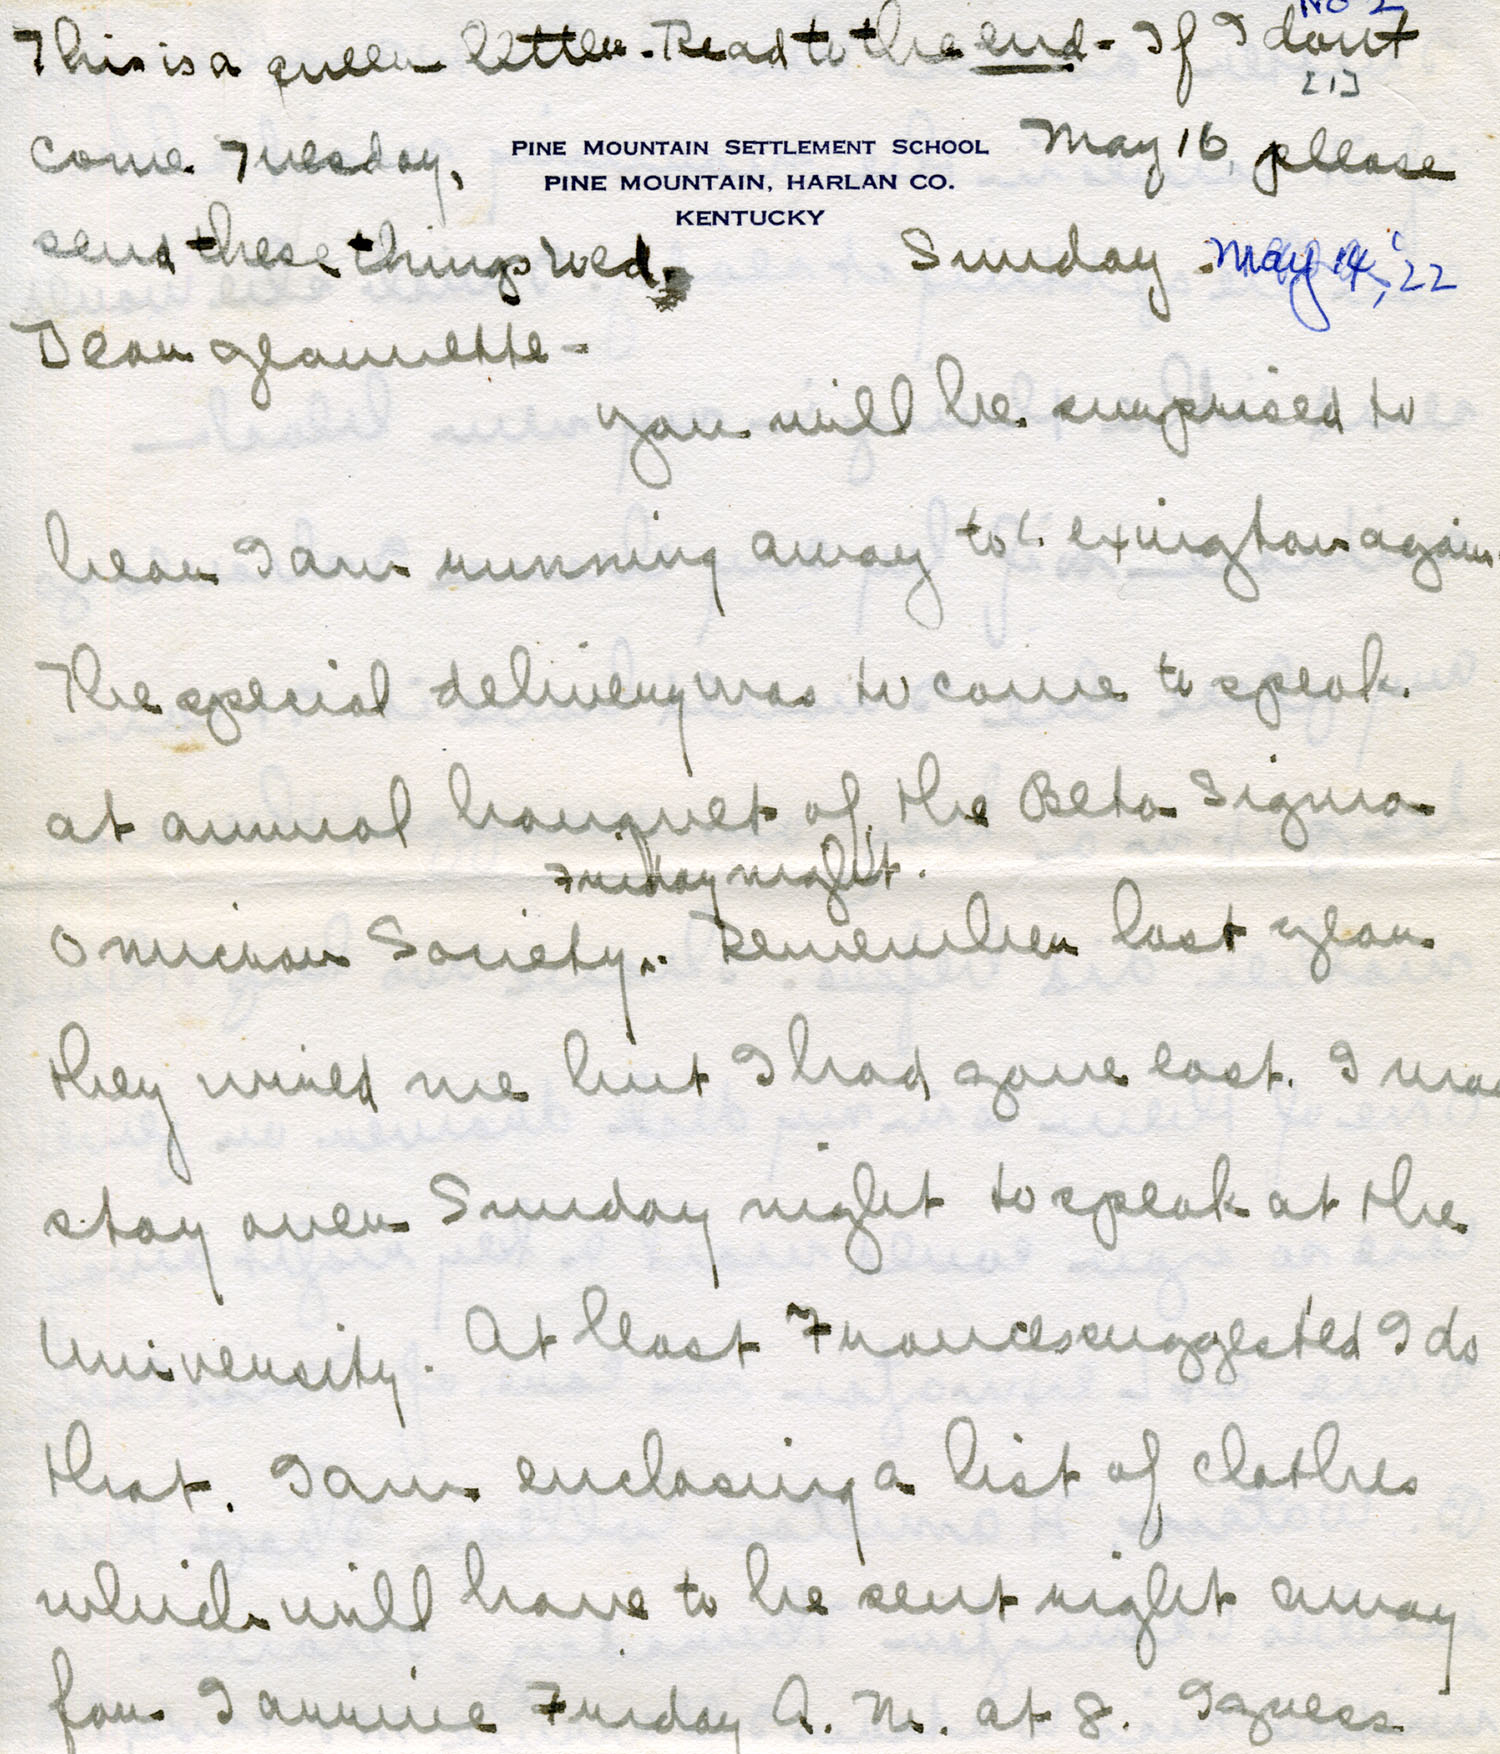 No 2
This is a queer letter. Read to the end - If I dont
[1]
come Tuesday, May 16, please
PINE MOUNTAIN SETTLEMENT SCHOOL
PINE MOUNTAIN, HARLAN CO.
KENTUCKY
send these things Wed.
Sunday. May 14, '22
Dear Jeannette -
You will be surprised to
hear I am running away to Lexington again.
The special delivery was to come to speak.
at annual banquet of the Beta Sigma
Friday night.
Omicron Society. Remember last year
they wired me but I had gone east. I may
stay over Sunday night to speak at the
University. At least Frances suggested I do
that. I am enclosing a list of clothes
which will have to be sent right away
for I arrive Friday A. M. at 8. I guess